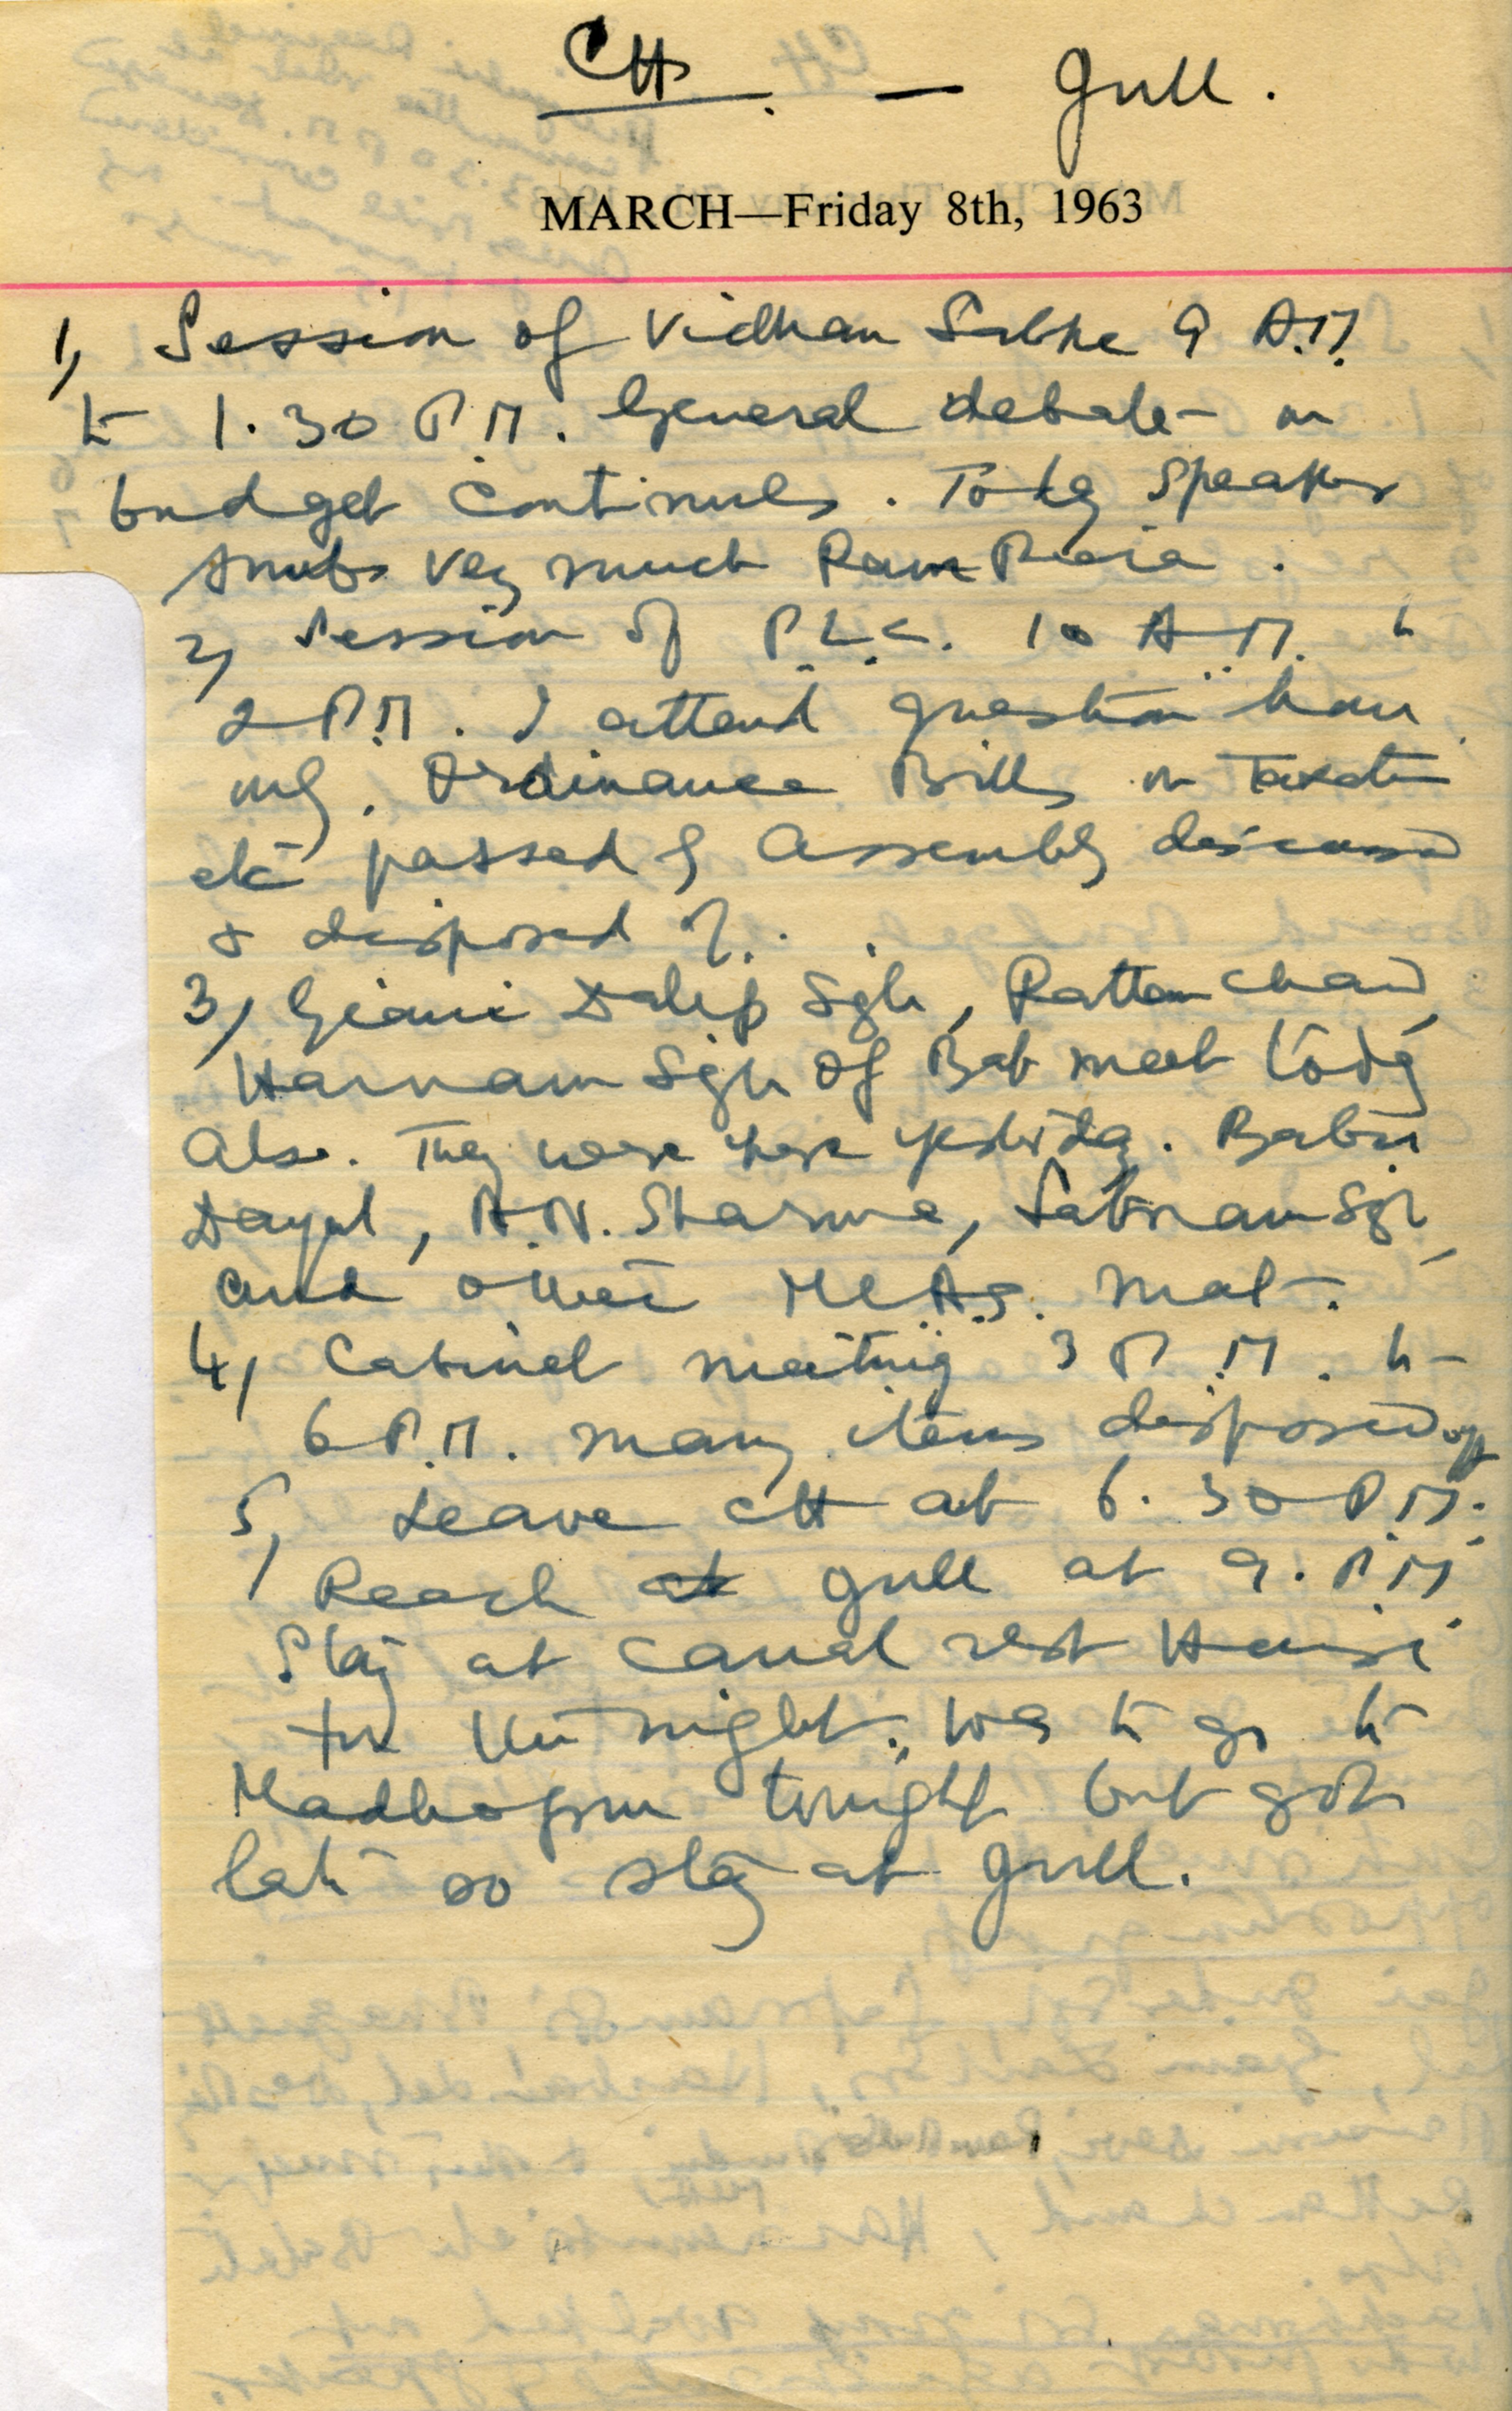 CH. — Jull.
MARCH—Friday 8th, 1963
1, Session of Vidhan Sabha 9 A.M.
to 1.30 P.M. General debate on
budget continues. Today Speaker
snubs very much Ram Piara.
2, Session of P.L.C. 10 A.M. to
2 P.M. I attend question hour
only. Ordinance Bills on Taxation
etc passed by Assembly discussed
& disposed of.
3, Giani Dalip Sgh, Rattan Chand,
Harnam Sgh of Bat meet today
also. They were here yesterday. Babu
Dayal, A.N. Sharma, Satnam Sgh,
and other MLAs. met.
4, Cabinet meeting 3 P.M. to
6 P.M. many items disposed off
5, Leave CH at 6.30 P.M.
Reach at Jull at 9. P.M.
Stay at Canal rest House
for the night. Was to go to
Madhopur tonight but got
late so stay at Jull.